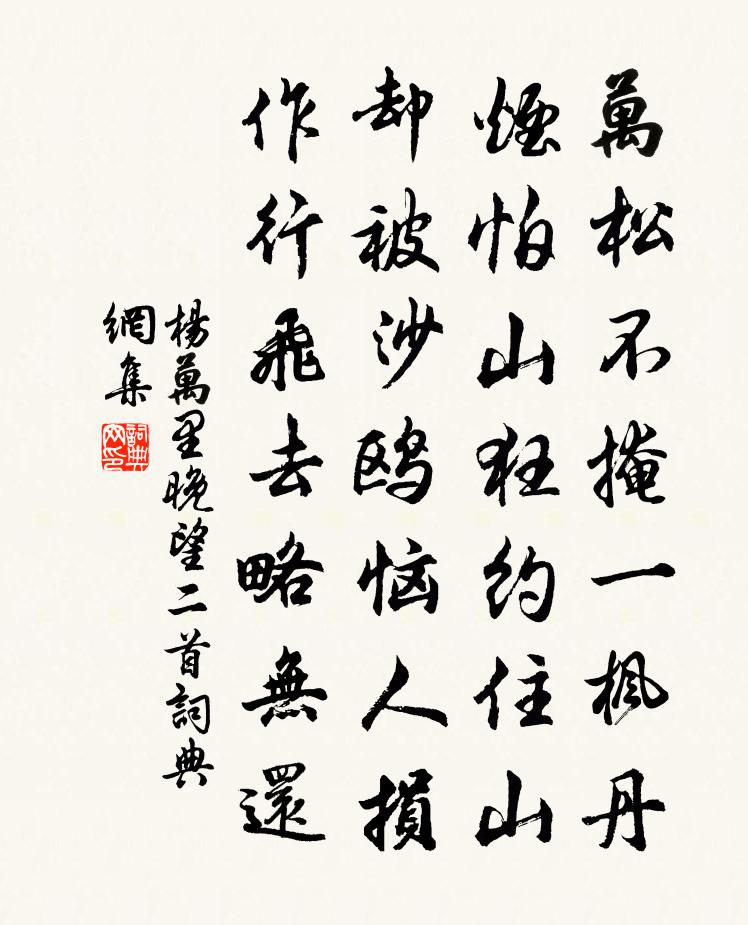 萬松不掩一楓丹
煙怕山狂約住山
却被沙鷗惱人損
作行飛去略無還
楊萬里晚望二首詞典
網集
詞典
网印